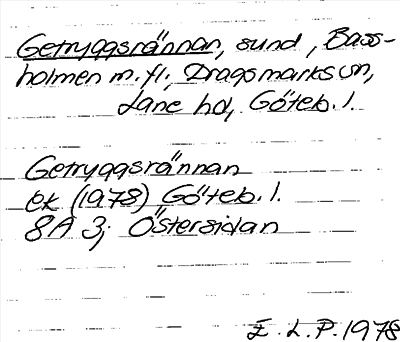 Getryggsrännan, sund, Bass-
holmen m.fl., Dragsmarks sn,
Lane hd, Göteb. l.
Getryggsrännan
ek (1978) Göteb. l.
8A 3; Östersidan
E. L. P. 1978